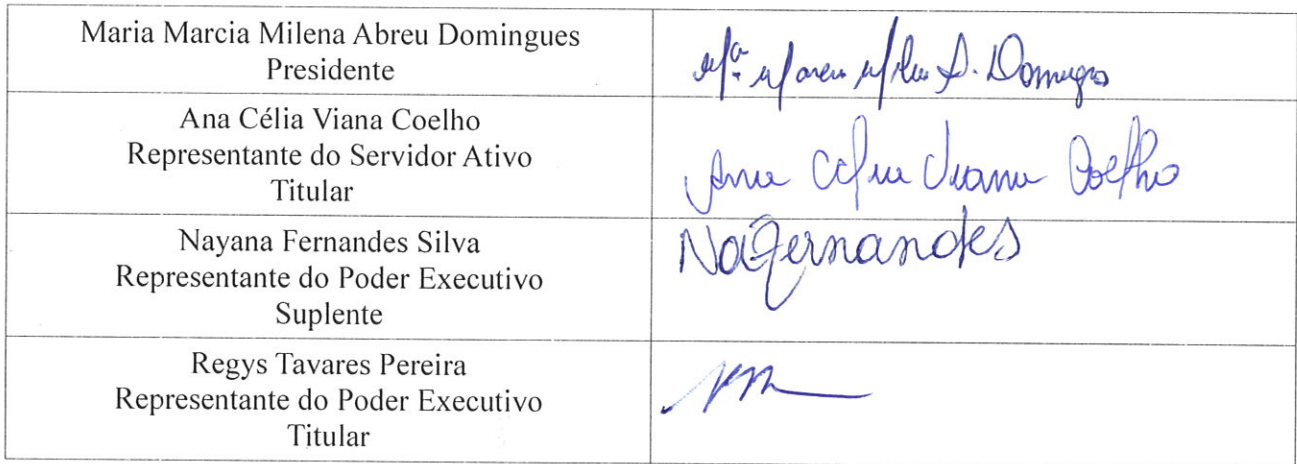 Maria Marcia Milena Abreu Domingues
Presidente
Mª Marcia Milena A. Domingues
Ana Célia Viana Coelho
Representante do Servidor Ativo
Titular
Ana Célia Viana Coelho
Nayana Fernandes Silva
Representante do Poder Executivo
Suplente
NaFernandes
Regys Tavares Pereira
Representante do Poder Executivo
Titular